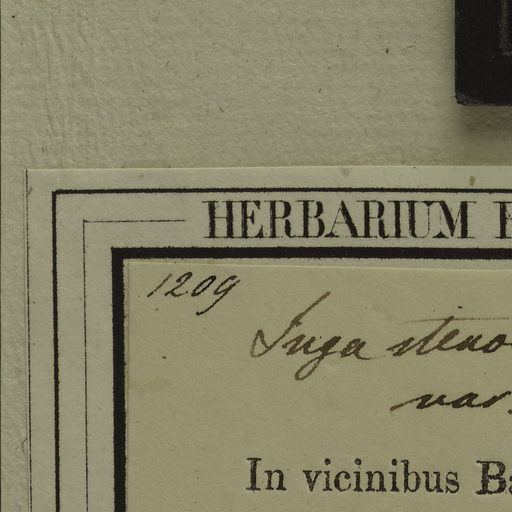 HERBARIUM
1209
Inga steno
var.
In vicinibus Ba